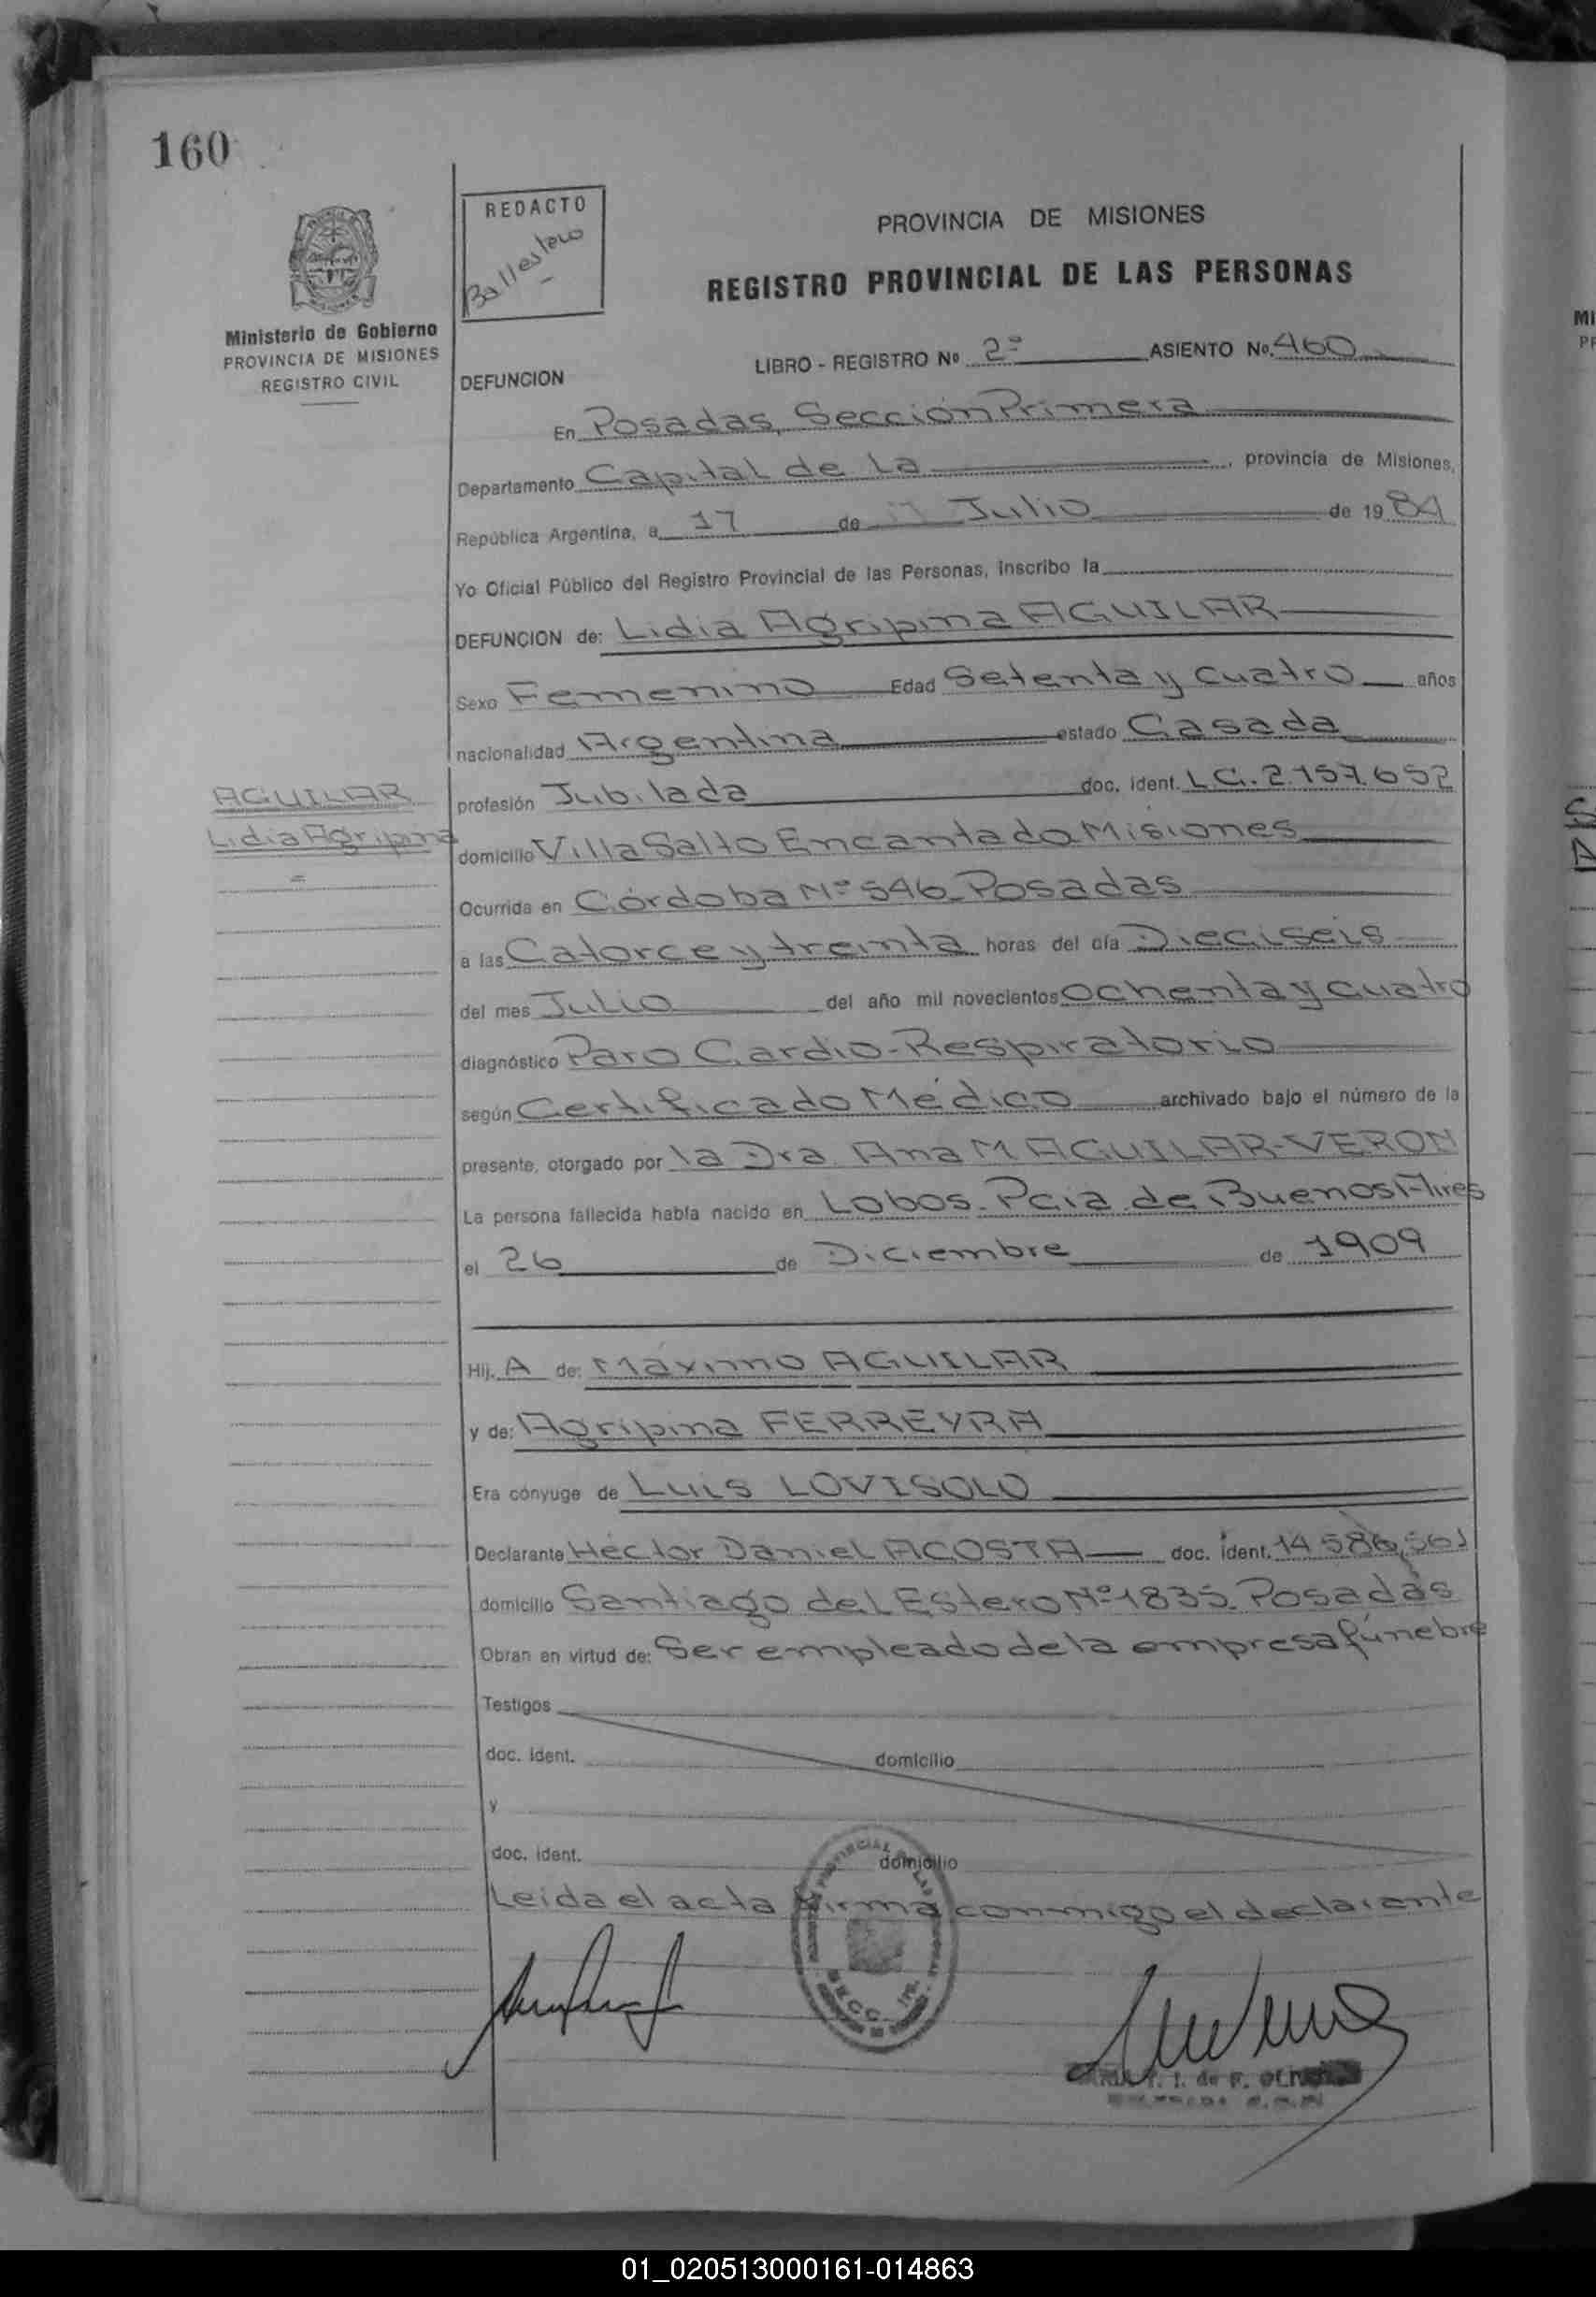 160
REDACTO
Ballestero
PROVINCIA DE MISIONES
REGISTRO PROVINCIAL DE LAS PERSONAS
Ministerio de Gobierno
PROVINCIA DE MISIONES
REGISTRO CIVIL
LIBRO - REGISTRO Nº 2º ASIENTO No. 460
DEFUNCION
En Posadas, Sección Primera
Departamento Capital de la , provincia de Misiones,
República Argentina, a 17 de Julio de 1984
Yo Oficial Público del Registro Provincial de las Personas, inscribo la
DEFUNCION de: Lidia Agripina AGUILAR
Sexo Femenino Edad Setenta y cuatro años
nacionalidad Argentina estado Casada
AGUILAR
Lidia Agripina
profesión Jubilada doc. ident. L.C. 2.157.652
domicilio Villa Salto Encantado Misiones
Ocurrida en Córdoba Nº 546 Posadas
a las Catorce y treinta horas del día Dieciseis
del mes Julio del año mil novecientos Ochenta y cuatro
diagnóstico Paro Cardio-Respiratorio
según Certificado Médico archivado bajo el número de la
presente, otorgado por la Dra Ana M AGUILAR-VERON
La persona fallecida había nacido en Lobos-Pcia de Buenos Aires
el 26 de Diciembre de 1909
Hij. A de: Máximo AGUILAR
y de: Agripina FERREYRA
Era cónyuge de Luis LOVISOLO
Declarante Héctor Daniel ACOSTA doc. ident. 14.586.561
domicilio Santiago del Estero Nº 1835 Posadas
Obran en virtud de: Ser empleado de la empresa fúnebre
Testigos
doc. ident. domicilio
y
doc. ident. domicilio
Leida el acta firma conmigo el declarante
01_020513000161-014863